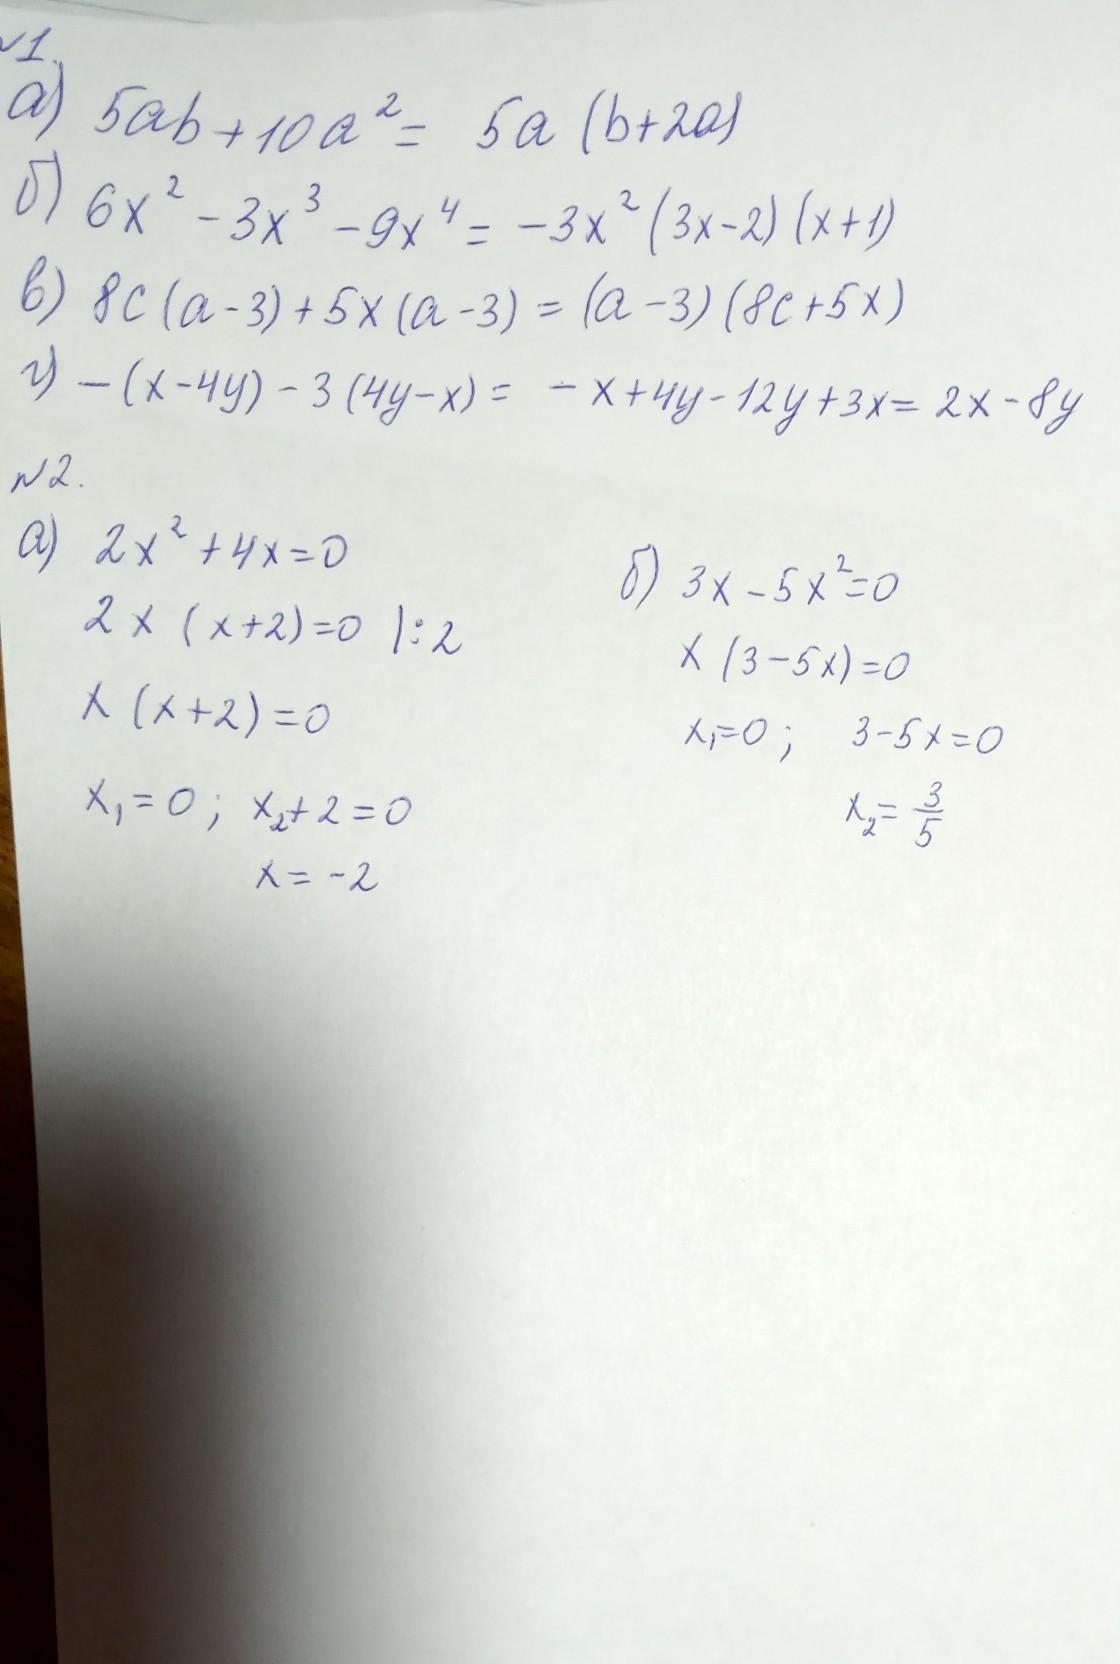 №1.
а) 5ab+10a²= 5a (b+2a)
б) 6x² - 3x³ - 9x⁴ = -3x² (3x-2) (x+1)
в) 8c (a-3) + 5x (a-3) = (a-3) (8c+5x)
г) - (x-4y) - 3 (4y-x) = - x+4y-12y+3x= 2x-8y
№2.
а) 2x² +4x=0
2x (x+2)=0 |:2
x (x+2) =0
x₁ = 0 ; x₂+2=0
x= -2
б) 3x-5x²=0
x (3-5x)=0
x₁=0 ; 3-5x=0
x₂= 3/5